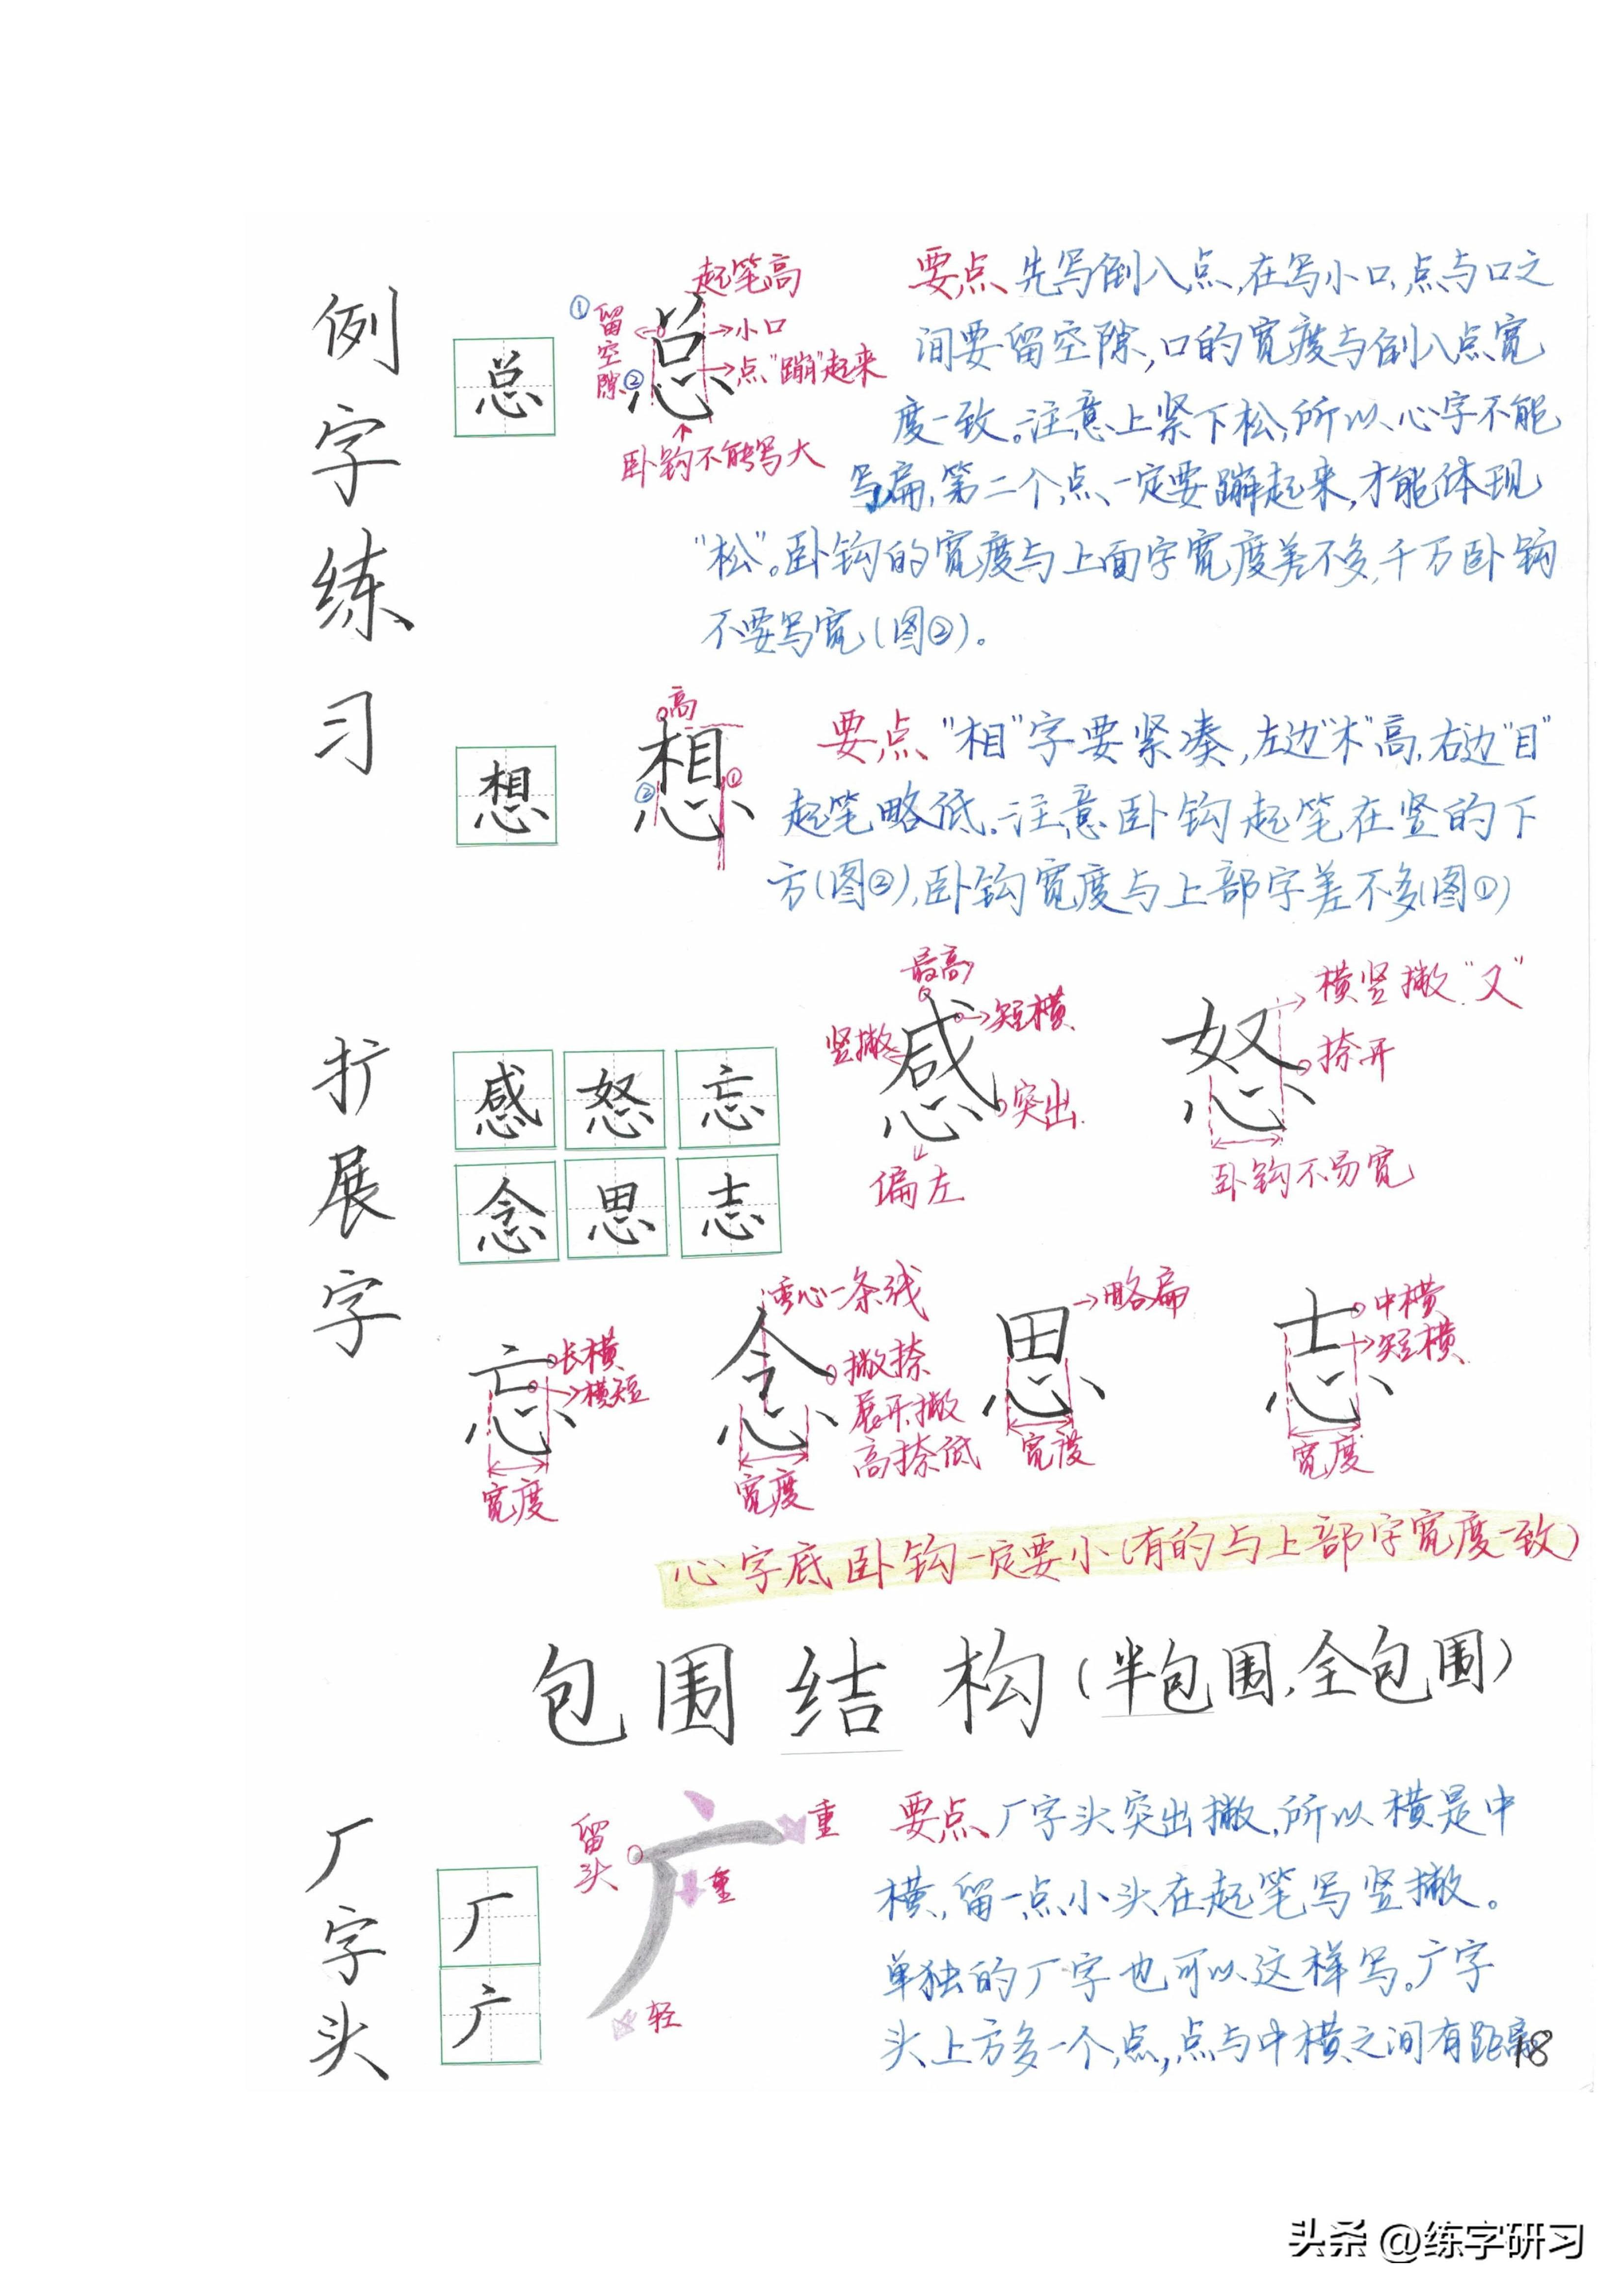 例字练习
总
起笔高
①
留空隙
总
小口
②
点"蹦"起来
卧钩不能写大
要点 先写倒八点,在写小口,点与口之
间要留空隙,口的宽度与倒八点宽
度一致。注意上紧下松,所以心字不能
写扁,第二个点一定要蹦起来,才能体现
"松"。卧钩的宽度与上面字宽度差不多,千万卧钩
不要写宽(图②)。
想
高
想
①
②
要点 "相"字要紧凑,左边"木"高,右边"目"
起笔略低。注意卧钩起笔在竖的下
方(图②),卧钩宽度与上部字差不多(图①)
扩展字
感 怒 忘
念 思 志
最高
竖撇
感
短横
突出
偏左
怒
横竖撇"又"
捺开
卧钩不易宽
忘
长横
横短
宽度
重心一条线
念
撇捺
展开,撇
高捺低
宽度
思
略扁
宽度
志
中横
短横
宽度
心字底卧钩一定要小(有的与上部字宽度一致)
包围结构(半包围,全包围)
厂字头
厂
广
留头
广
重
重
轻
要点 厂字头突出撇,所以横是中
横,留一点小头在起笔写竖撇。
单独的厂字也可以这样写。广字
头上方多一个点,点与中横之间有距离
18
头条 @练字研习